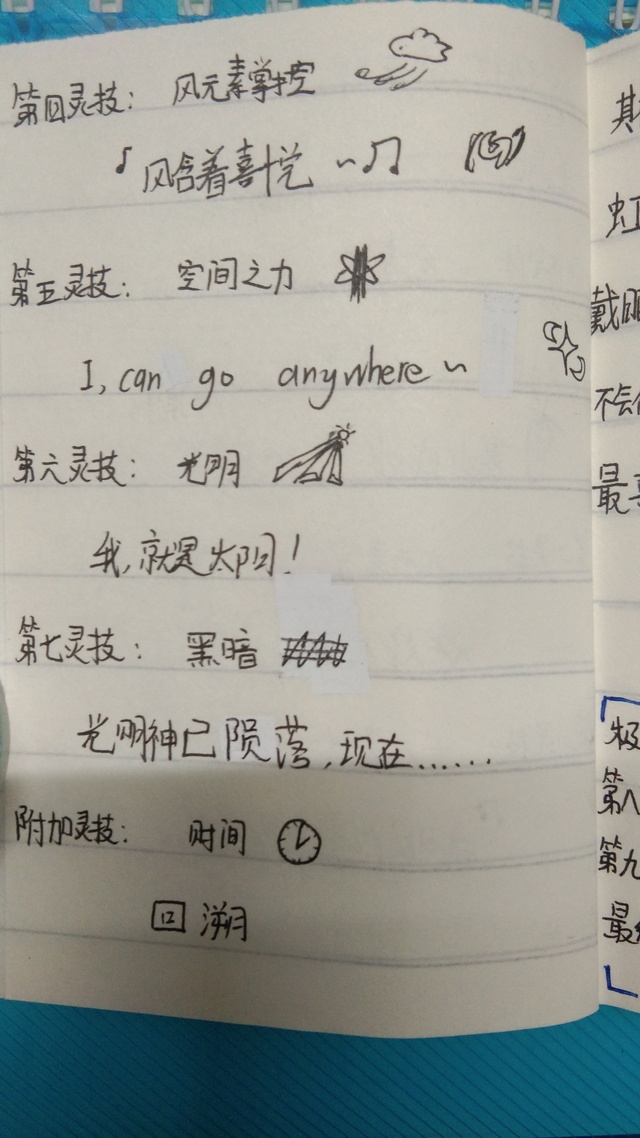 第四灵技：风元素掌控
风含着喜悦～
第五灵技：空间之力
I, can go anywhere～
第六灵技：光明
我，就是太阳！
第七灵技：黑暗
光明神已陨落，现在......
附加灵技：时间
回溯
虹
戴明
不会
最喜
极
第八
第九
最终